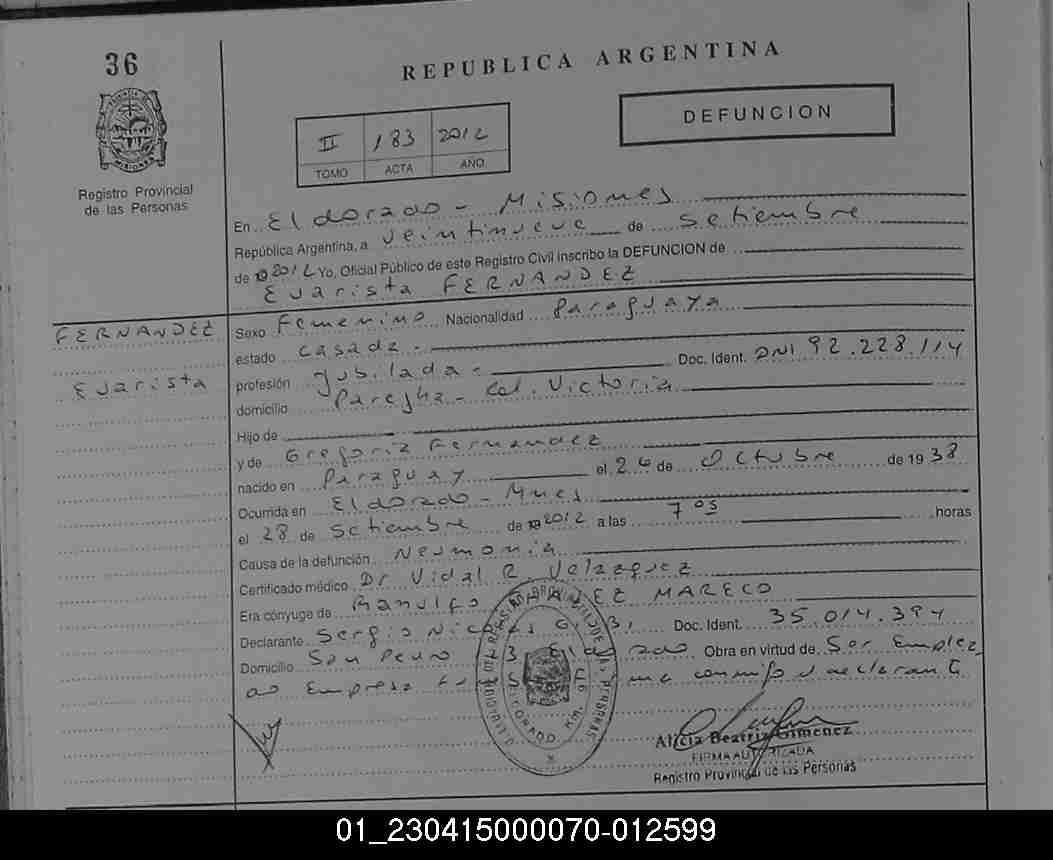 36
REPUBLICA ARGENTINA
DEFUNCION
II 183 2012
TOMO ACTA AÑO
PROVINCIA DE MISIONES
Registro Provincial
de las Personas
En Eldorado - Misiones
República Argentina, a veintinueve de Setiembre
de 2012 Yo, Oficial Público de este Registro Civil inscribo la DEFUNCION de
Evarista FERNANDEZ
FERNANDEZ
Evarista
Sexo Femenino Nacionalidad Paraguaya
estado Casada -
profesión Jubilada - Doc. Ident. DNI 92.228.114
domicilio Col. Victoria
Hijo de
y de Gregoria Fernandez
nacido en Paraguay el 26 de Octubre de 1938
Ocurrida en Eldorado - Mnes
el 28 de Setiembre de 2012 a las 7 05 horas
Causa de la defunción Neumonia
Certificado médico Dr Vidal R. Velazquez
Era cónyuge de Ranulfo MARECO
Declarante Sergio Doc. Ident. 35.014.394
Domicilio San Pedro Eldorado Obra en virtud de Ser Emplea
do Empresa conmigo el declarante
Alicia Beatriz Gimenez
FIRMA AUTORIZADA
Registro Provincial de las Personas
01_230415000070-012599